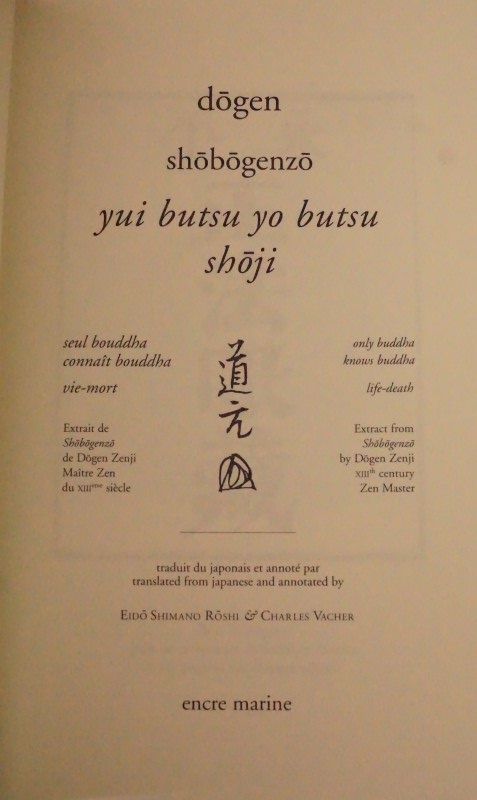 dōgen
shōbōgenzō
yui butsu yo butsu
shōji
seul bouddha
connaît bouddha
vie-mort
Extrait de
Shōbōgenzō
de Dōgen Zenji
Maître Zen
du XIIIème siècle
道
元
only buddha
knows buddha
life-death
Extract from
Shōbōgenzō
by Dōgen Zenji
XIIIth century
Zen Master
traduit du japonais et annoté par
translated from japanese and annotated by
Eidō Shimano Rōshi & Charles Vacher
encre marine